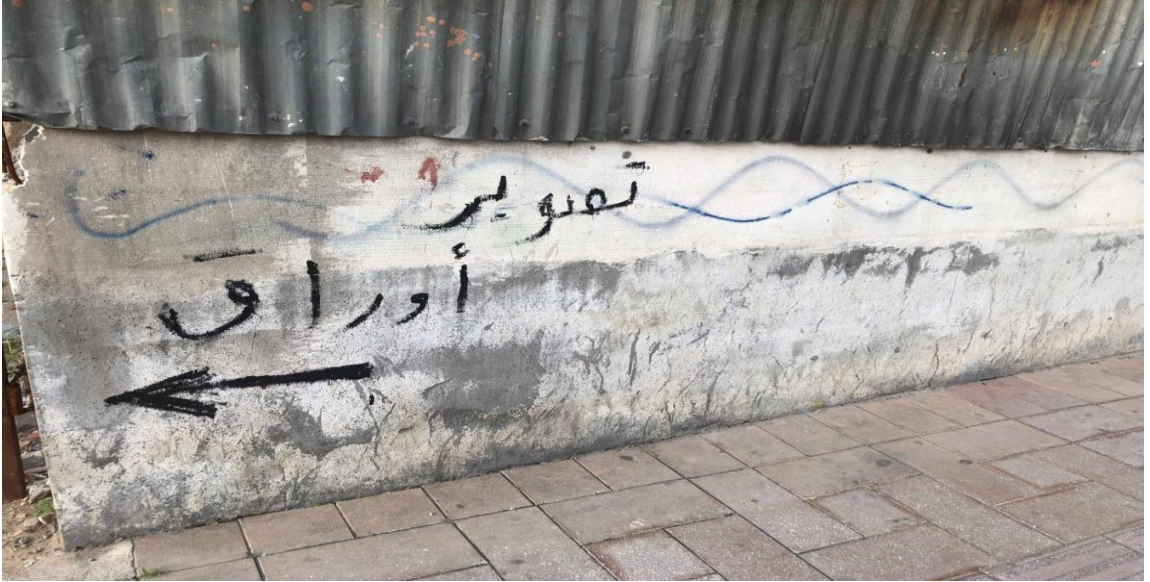 تصوير
أوراق